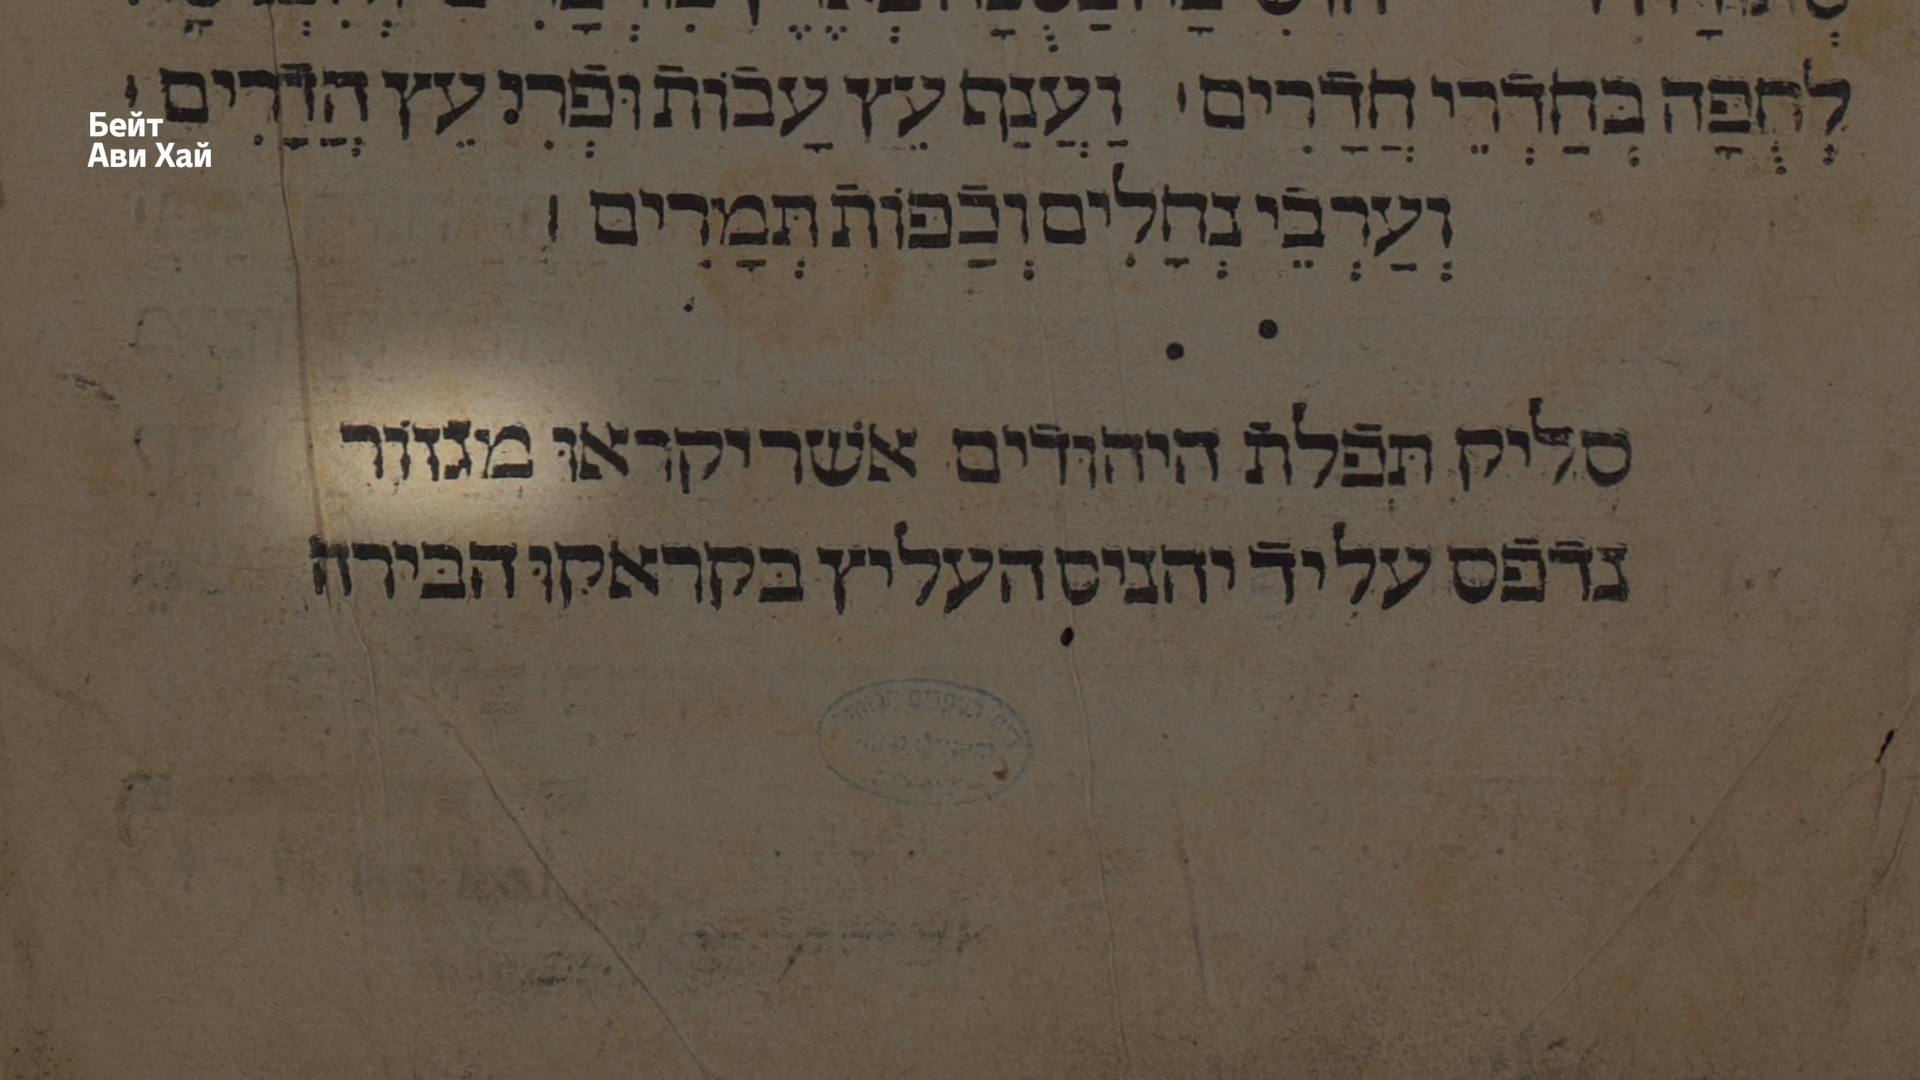 Бейт
Ави Хай
לְחֻפָּה בְּחַדְרֵי חֲדָרִים׳ וַעֲנַף עֵץ עָבוֹת וּפְרִי עֵץ הֲדָרִים׳
וְעַרְבֵי נְחָלִים וְכַפּוֹת תְּמָרִים׳
סליק תפלת היהודים אשר יקראו מגזור
נדפס על יד יהניס העליץ בקראקו הבירה